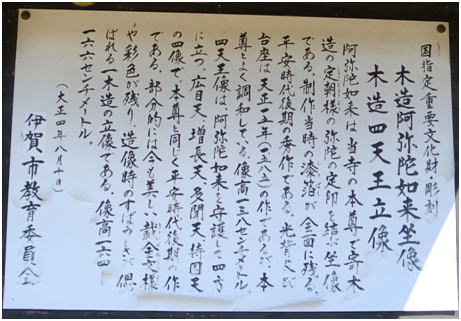 国指定重要文化財・彫刻
木造阿弥陀如来坐像
木造四天王立像
阿弥陀如来は、当寺の本尊で寄木
造の定朝様の弥陀の定印を結ぶ坐像
である。制作当時の漆箔が全面に残る、
平安時代後期の秀作である。光背及び
台座は天正一五年(一五八七)の作であるが、本
尊とよく調和している。像高一三八センチメートル。
四天王像は、阿弥陀如来を守護して四方
に立つ、広目天、増長天、多聞天、持国天
の四像で、本尊と同じく平安時代後期の作
である。部分的には今も美しい截金文様
や彩色が残り、造像時のすばらしさが偲
ばれる一木造の立像である。像高一六四~
一六六センチメートル。
(大正四年八月十日)
伊賀市教育委員会